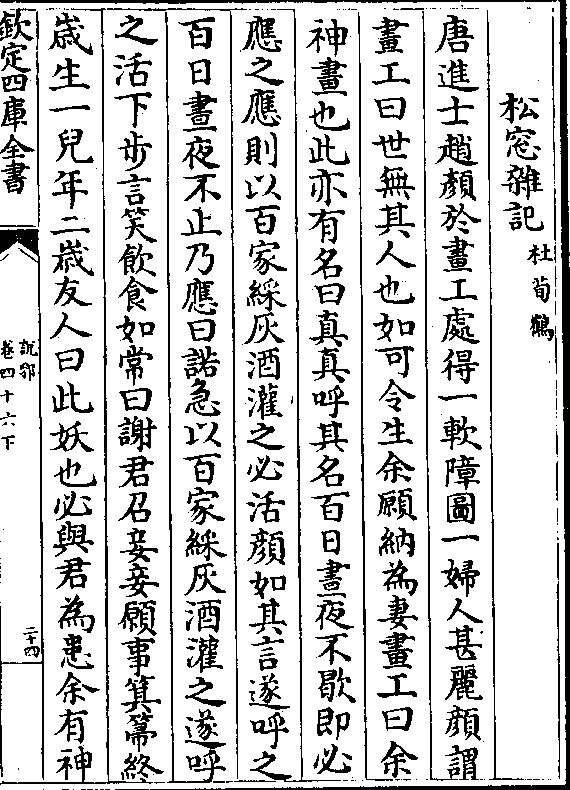 松窓雜記 杜荀鶴
唐進士趙顔於畫工處得一軟障圖一婦人甚麗顔謂
畫工曰世無其人也如可令生余願納為妻畫工曰余
神畫也此亦有名曰真真呼其名百日晝夜不歇即必
應之應則以百家綵灰酒灌之必活顔如其言遂呼之
百日晝夜不止乃應曰諾急以百家綵灰酒灌之遂呼
之活下步言笑飲食如常曰謝君召妾妾願事箕箒終
歲生一兒年二歲友人曰此妖也必與君為患余有神
欽定四庫全書
説郛
卷四十六下
二十四